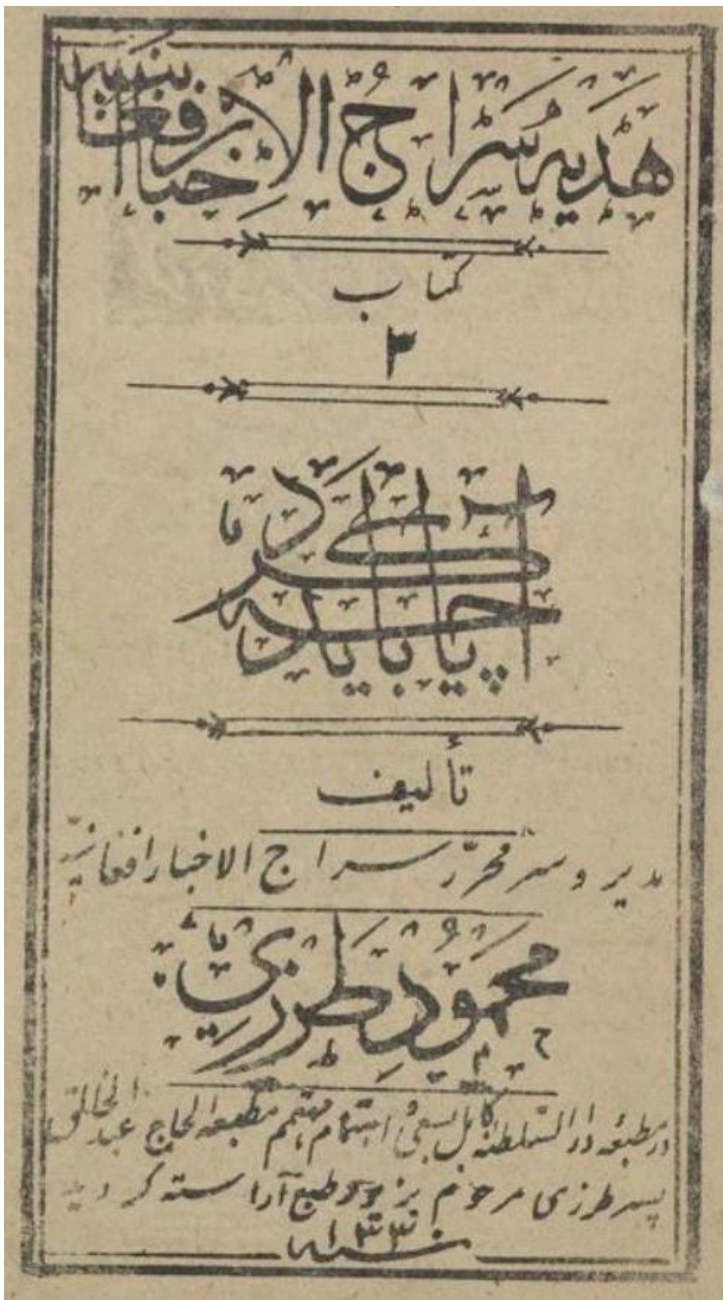 هدیه سراج الاخبار افغانیه
کتاب
۳
آیا چه باید کرد
تألیف
مدیر و سر محرّر سراج الاخبار افغانیّه
محمود طرزی
در مطبعه دار السّلطنه کابل بسعی اهتمام مهتمم مطبعه الحاج عبد الخالق
پسر طرزی مرحوم بزیور طبع آراسته گردید
سنه ۱۳۳۰